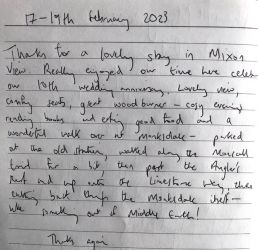 17-19th February 2023
Thanks for a lovely stay in Mixon
View. Really enjoyed our time here celeb
our 10th wedding anniversary. Lovely view,
comfy seats, great wood burner - cosy evening
reading books and eating good food and a
wonderful walk over at Monksdale - parked
at the old station, walked along the Monsal
trail for a bit, then past the Angler's
Rest and up onto the Limestone Way, then
cutting back through the Monksdale
like something out of Middle Earth!
Thanks again